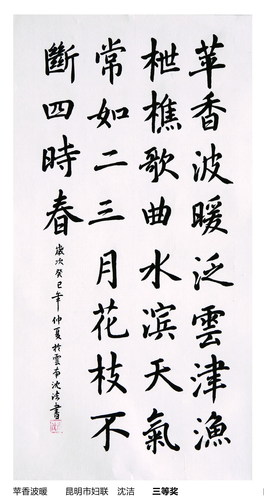 苹香波暖泛雲津漁
枻樵歌曲水滨天氣
常如二三月花枝不
斷四時春
歲次癸巳年仲夏於雲南沈洁書
苹香波暖 昆明市妇联 沈洁 三等奖